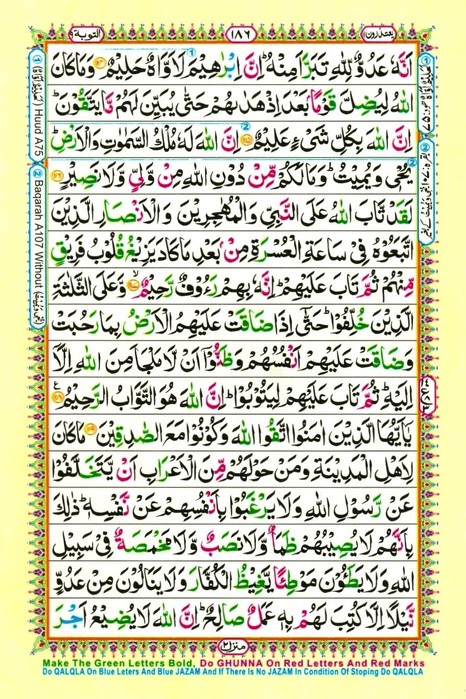 يعتذرون ١٨٦ التوبة
اَنَّهٗ عَدُوٌّ لِّلّٰهِ تَبَرَّاَ مِنْهُ ؕ اِنَّ اِبْرٰهِيْمَ لَاَوَّاهٌ حَلِيْمٌ ﴿۱۱۴﴾ وَمَا كَانَ
اللّٰهُ لِيُضِلَّ قَوْمًۢا بَعْدَ اِذْ هَدٰىهُمْ حَتّٰى يُبَيِّنَ لَهُمْ مَّا يَتَّقُوْنَ ؕ
اِنَّ اللّٰهَ بِكُلِّ شَىْءٍ عَلِيْمٌ ﴿۱۱۵﴾ اِنَّ اللّٰهَ لَهٗ مُلْكُ السَّمٰوٰتِ وَالْاَرْضِ ؕ
يُحْىٖ وَيُمِيْتُ ؕ وَمَا لَكُمْ مِّنْ دُوْنِ اللّٰهِ مِنْ وَّلِىٍّ وَّلَا نَصِيْرٍ ﴿۱۱۶﴾
لَقَدْ تَّابَ اللّٰهُ عَلَى النَّبِىِّ وَالْمُهٰجِرِيْنَ وَالْاَنْصَارِ الَّذِيْنَ
اتَّبَعُوْهُ فِىْ سَاعَةِ الْعُسْرَةِ مِنْۢ بَعْدِ مَا كَادَ يَزِيْغُ قُلُوْبُ فَرِيْقٍ
مِّنْهُمْ ثُمَّ تَابَ عَلَيْهِمْ ؕ اِنَّهٗ بِهِمْ رَءُوْفٌ رَّحِيْمٌ ﴿۱۱۷﴾ وَّعَلَى الثَّلٰثَةِ
الَّذِيْنَ خُلِّفُوْا ؕ حَتّٰۤى اِذَا ضَاقَتْ عَلَيْهِمُ الْاَرْضُ بِمَا رَحُبَتْ
وَضَاقَتْ عَلَيْهِمْ اَنْفُسُهُمْ وَظَنُّوْۤا اَنْ لَّا مَلْجَاَ مِنَ اللّٰهِ اِلَّاۤ
اِلَيْهِ ؕ ثُمَّ تَابَ عَلَيْهِمْ لِيَتُوْبُوْا ؕ اِنَّ اللّٰهَ هُوَ التَّوَّابُ الرَّحِيْمُ ﴿۱۱۸﴾
يٰۤاَيُّهَا الَّذِيْنَ اٰمَنُوا اتَّقُوا اللّٰهَ وَكُوْنُوْا مَعَ الصّٰدِقِيْنَ ﴿۱۱۹﴾ مَا كَانَ
لِاَهْلِ الْمَدِيْنَةِ وَمَنْ حَوْلَهُمْ مِّنَ الْاَعْرَابِ اَنْ يَّتَخَلَّفُوْا
عَنْ رَّسُوْلِ اللّٰهِ وَلَا يَرْغَبُوْا بِاَنْفُسِهِمْ عَنْ نَّفْسِهٖ ؕ ذٰلِكَ
بِاَنَّهُمْ لَا يُصِيْبُهُمْ ظَمَاٌ وَّلَا نَصَبٌ وَّلَا مَخْمَصَةٌ فِىْ سَبِيْلِ
اللّٰهِ وَلَا يَطَـُٔوْنَ مَوْطِئًا يَّغِيْظُ الْكُفَّارَ وَلَا يَنَالُوْنَ مِنْ عَدُوٍّ
نَّيْلًا اِلَّا كُتِبَ لَهُمْ بِهٖ عَمَلٌ صَالِحٌ ؕ اِنَّ اللّٰهَ لَا يُضِيْعُ اَجْرَ
منزل ٢
① Huud A75
② Baqarah A107 Without
Make The Green Letters Bold, Do GHUNNA On Red Letters And Red Marks
Do QALQLA On Blue Leters And Blue JAZAM And If There Is No JAZAM In Condition Of Stoping Do QALQLA